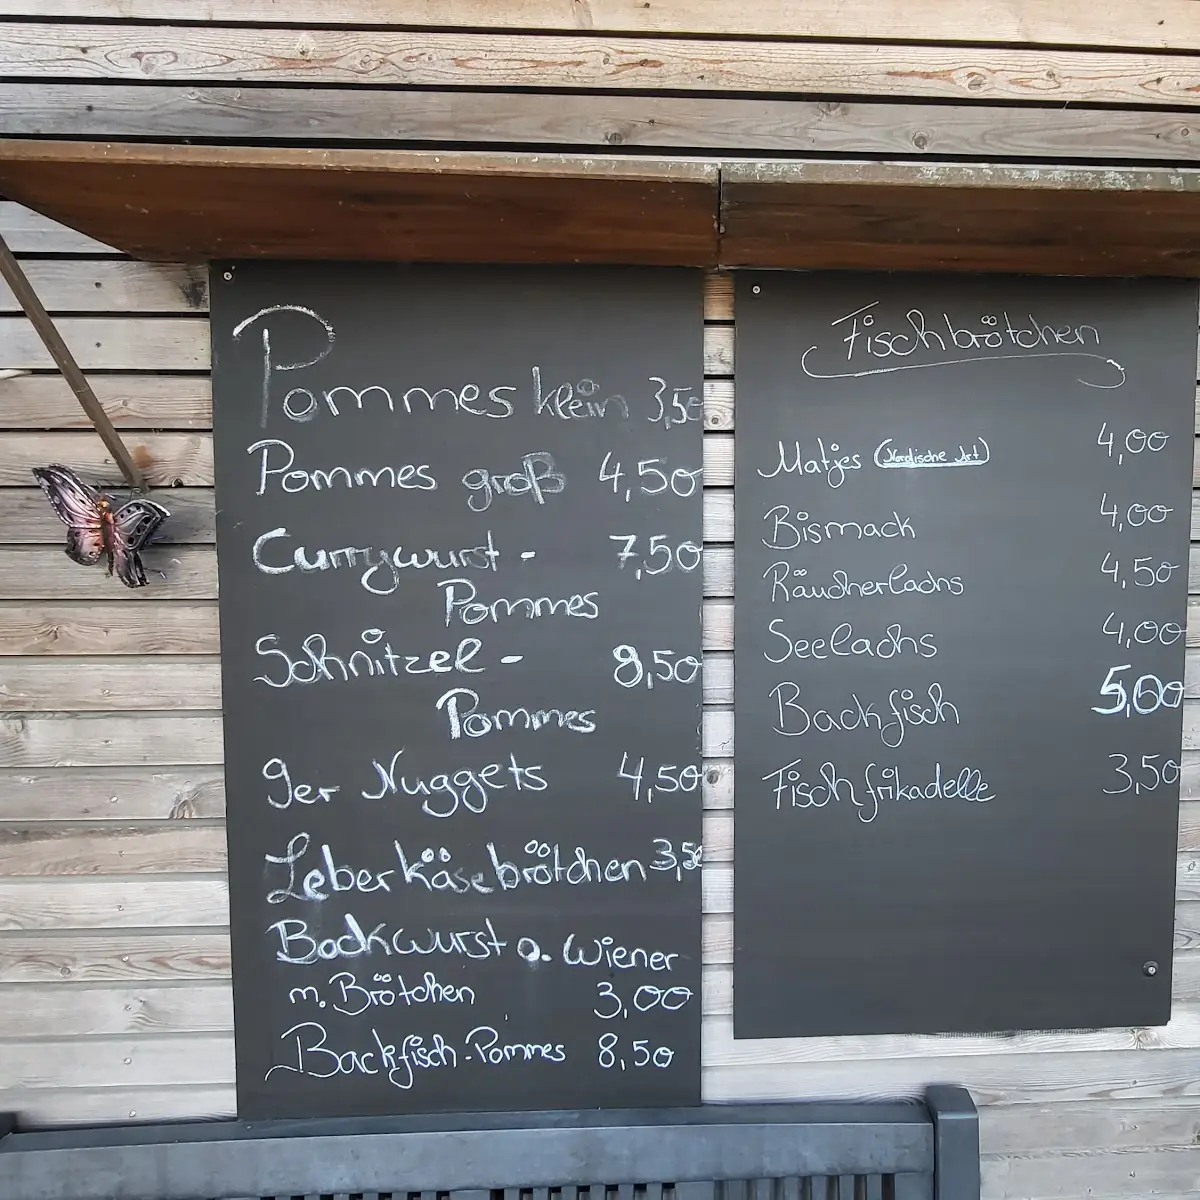 Pommes klein 3,50
Pommes groß 4,50
Currywurst - 7,50
Pommes
Schnitzel - 8,50
Pommes
9er Nuggets 4,50
Leberkäsebrötchen 3,50
Bockwurst o. Wiener
m. Brötchen 3,00
Backfisch-Pommes 8,50
Fischbrötchen
Matjes (Nordische Art) 4,00
Bismack 4,00
Räucherlachs 4,50
Seelachs 4,00
Backfisch 5,00
Fischfrikadelle 3,50